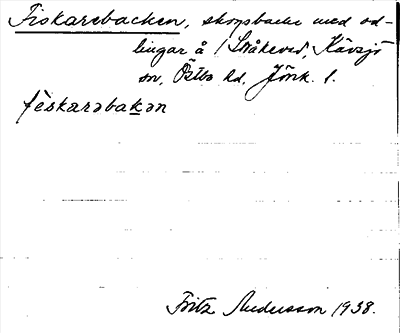 Fiskarebacken, skogsbacke med od-
lingar å Stråkeved, Kävsjö
sn, Östbo hd, Jönk. l.
fèskarəbakən
Fritz Andersson 1938.